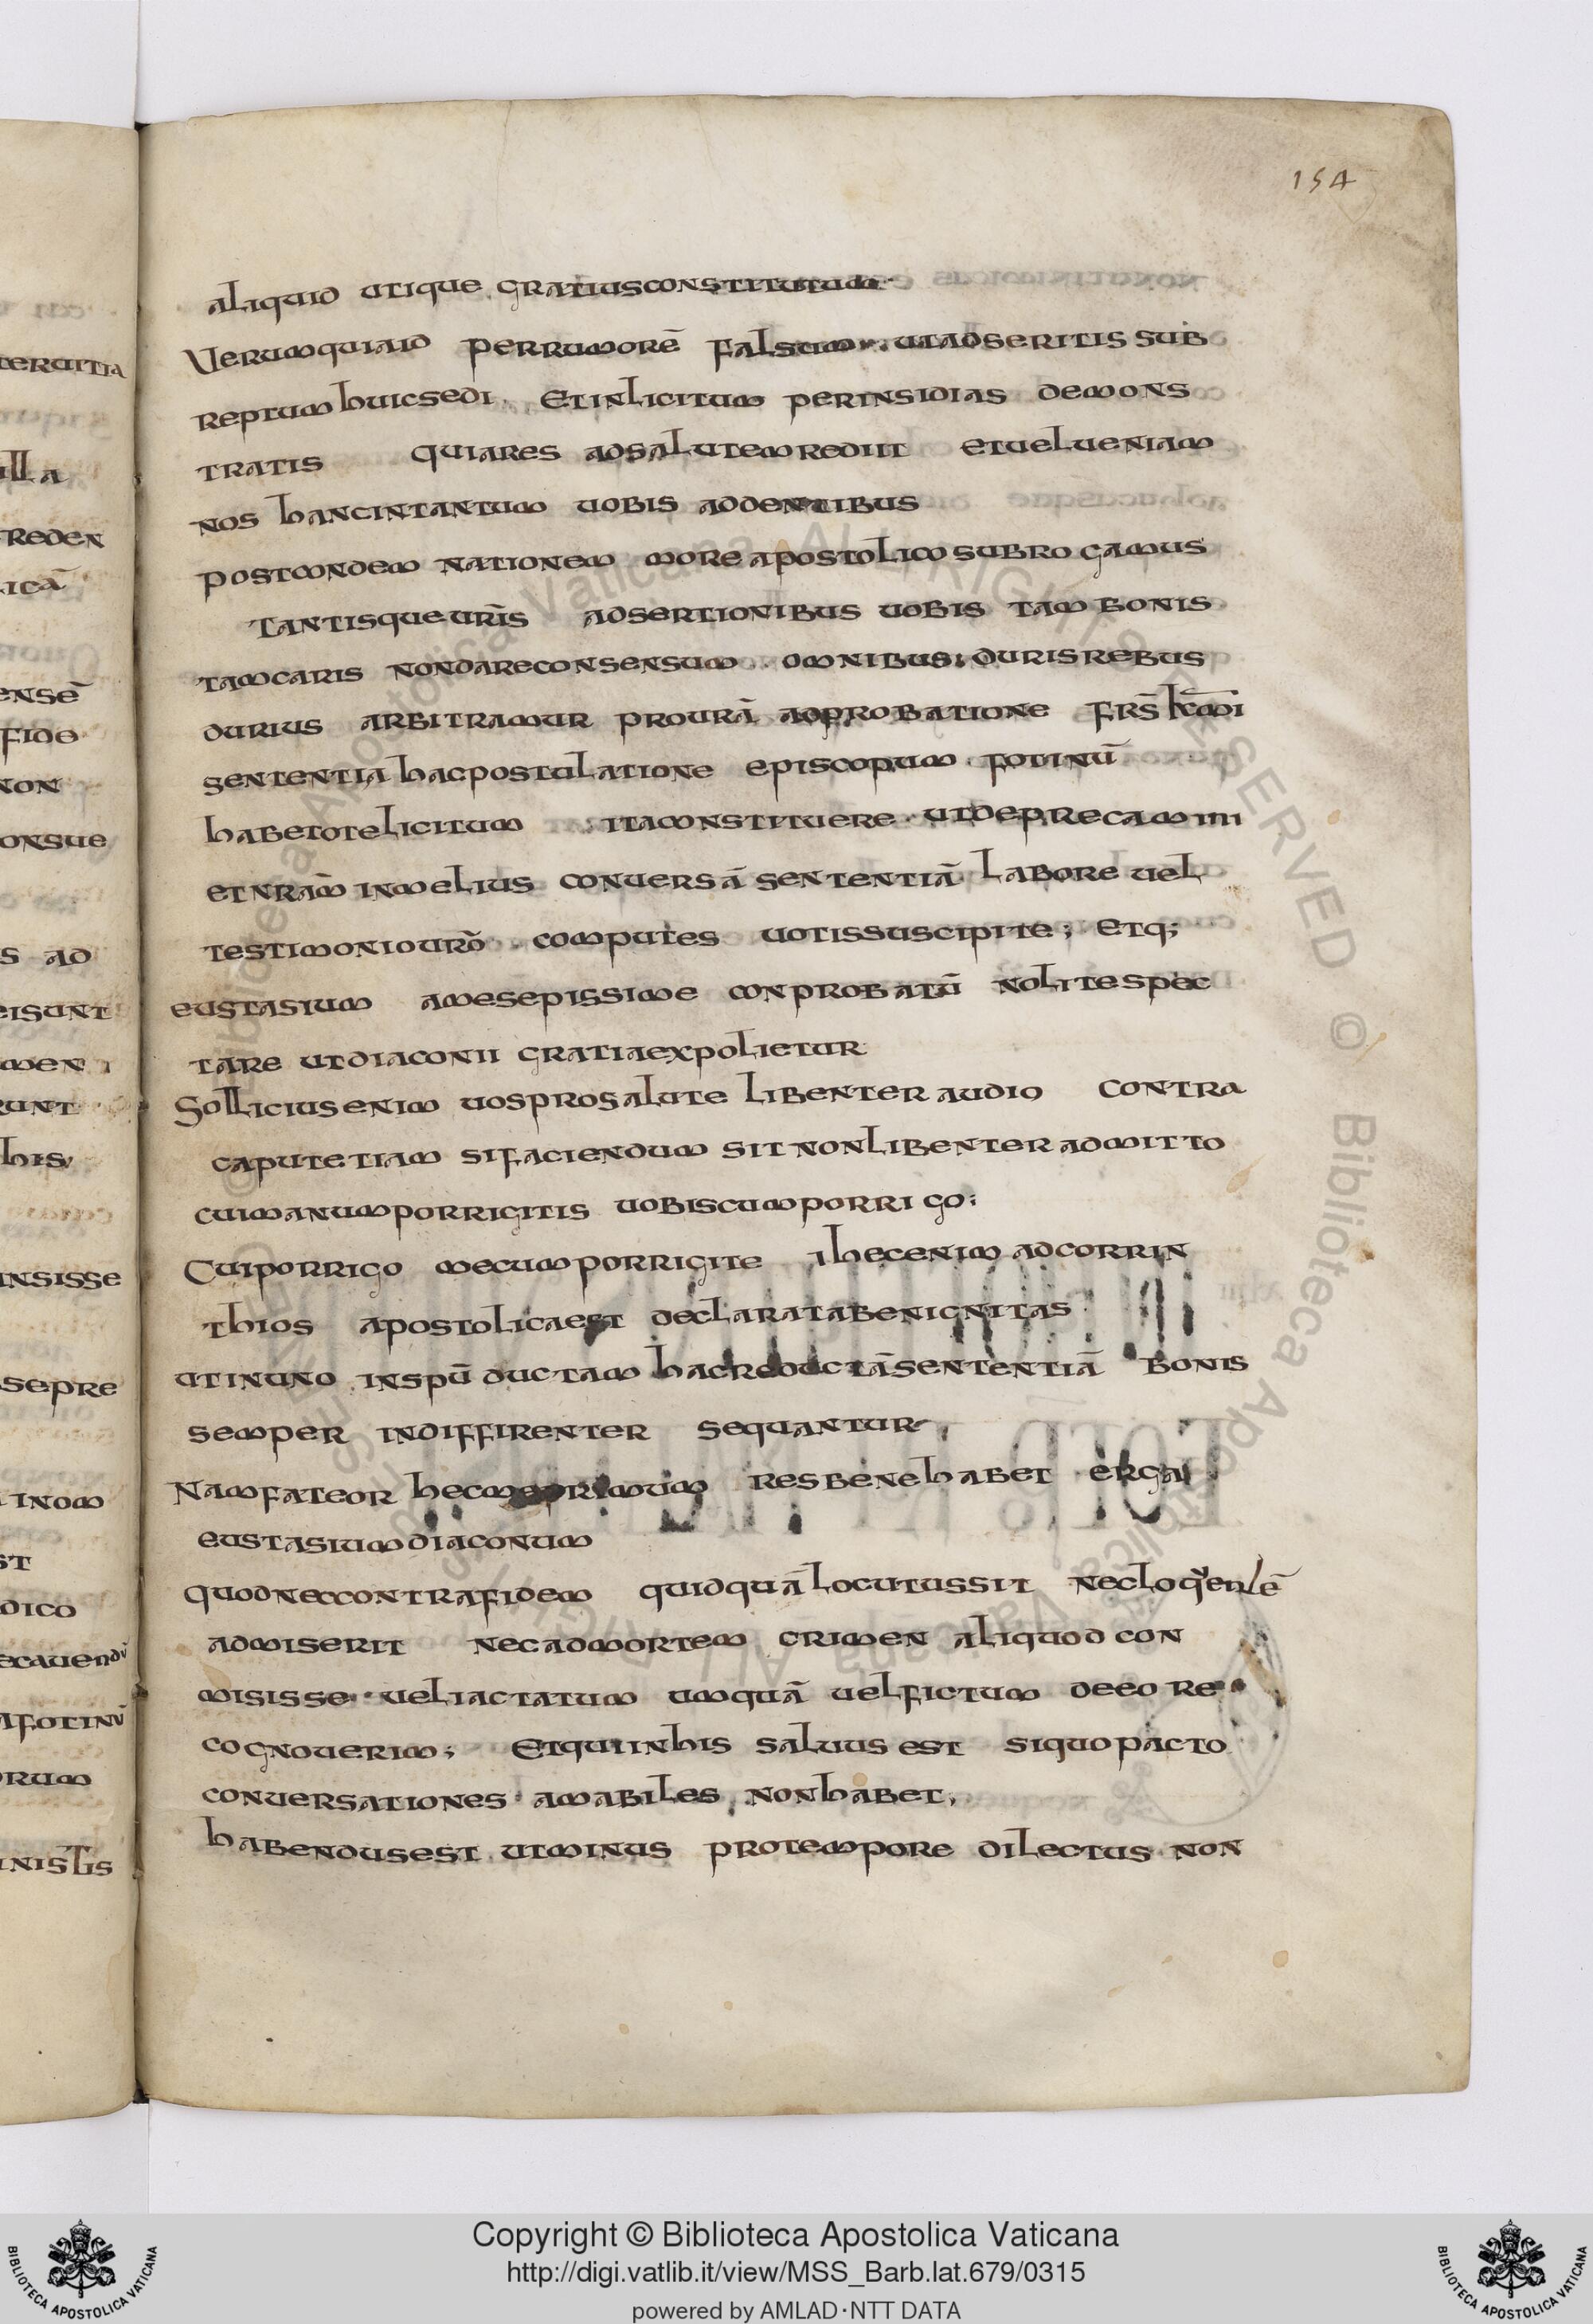 154
aliquid utique gratius constitutum
Uerum quia id per rumorē falsum ut adseritis sub
reptum huic sedi et inlicitum per insidias demons
tratis quia res ad salutem rediit et uel ueniam
nos hanc in tantum uobis addentibus
post condemnationem more apostolico subrogamus
Tantisque uris̄ adsertionibus uobis tam bonis
tam caris non dare consensum omnibus duris rebus
durius arbitramur pro urā adprobatione frs̄ kmī
sententia hac postulatione episcopum fotinū
habetote licitum ita constituere ut deprecamini
et nram̄ in melius conuersā sententiā labore uel
testimonio urō computes uotis suscipite; etq;
eustasium a me sepissime conprobatū nolite spec
tare ut diaconii gratia expolietur
Sollicius enim uos pro salute libenter audio contra
caput etiam si faciendum sit non libenter admitto
cui manum porrigitis uobiscum porrigo;
Cui porrigo mecum porrigite hec enim ad corrin
thios apostolica est declarata benignitas
ut in uno in spū ductam hac reductā sententiā bonis
semper indiffirenter sequantur
Nam fateor hec res bene habet erga
eustasium diaconum
quod nec contra fidem quidquā locutus sit nec
admiserit nec ad mortem crimen aliquod con
misisse uel iactatum umquā uel fictum de eo re
cognouerim; Et qui in his saluus est si quo pacto
conuersationes amabiles non habet,
habendus est ut minus pro tempore dilectus non
Copyright © Biblioteca Apostolica Vaticana
http://digi.vatlib.it/view/MSS_Barb.lat.679/0315
powered by AMLAD·NTT DATA